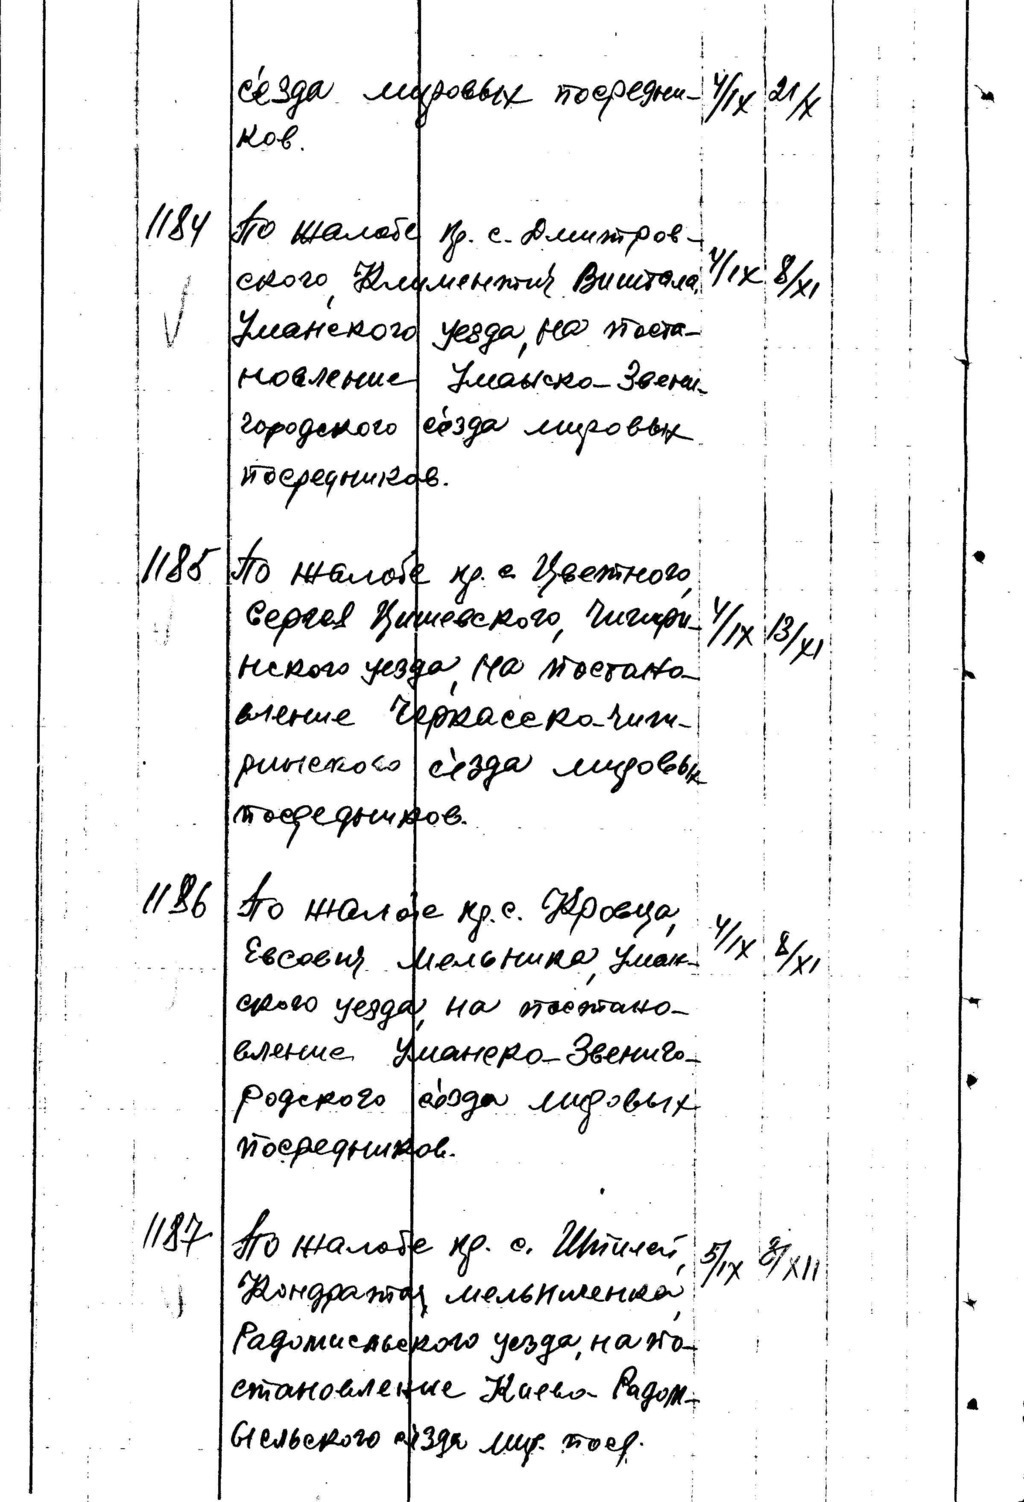 съезда мировых посредни- 4/IX 21/X
ков.
1184 По жалобе кр. с. Дмитров-
ского, Климентия Виштала, 4/IX 8/XI
Уманского уезда, на поста-
новление Уманско-Звени-
городского съезда мировых
посредников.
1185 По жалобе кр. с. Цветного,
Сергея Цишевского, Чигири- 4/IX 13/XI
нского уезда, на постано-
вление Черкасско-Чиги-
ринского съезда мировых
посредников.
1186 По жалобе кр. с. Кровца,
Евсовия Мельника, Уман- 4/IX 8/XI
ского уезда, на постано-
вление Уманско-Звениго-
родского съезда мировых
посредников.
1187 По жалобе кр. с. 5/IX 8/XII
Кондратия Мельниченка,
Радомисльского уезда, на по-
становление Киево-Радом-
ысльского съезда мир. поср.